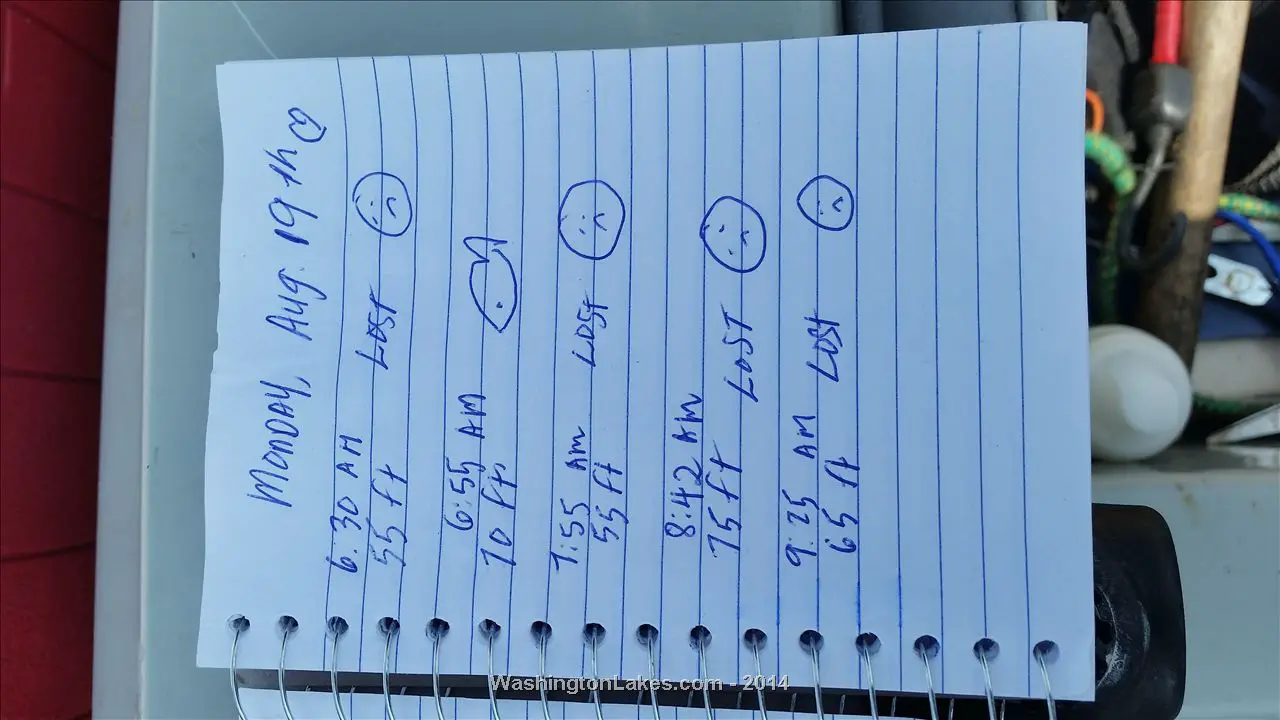 MONDAY, Aug. 19 th
6.30 AM
55 ft LOST
6:55 AM
70 ft.
7:55 AM
55 ft LOST
8:42 AM
75 ft LOST
9:25 AM
65 ft LOST
WashingtonLakes.com - 2014